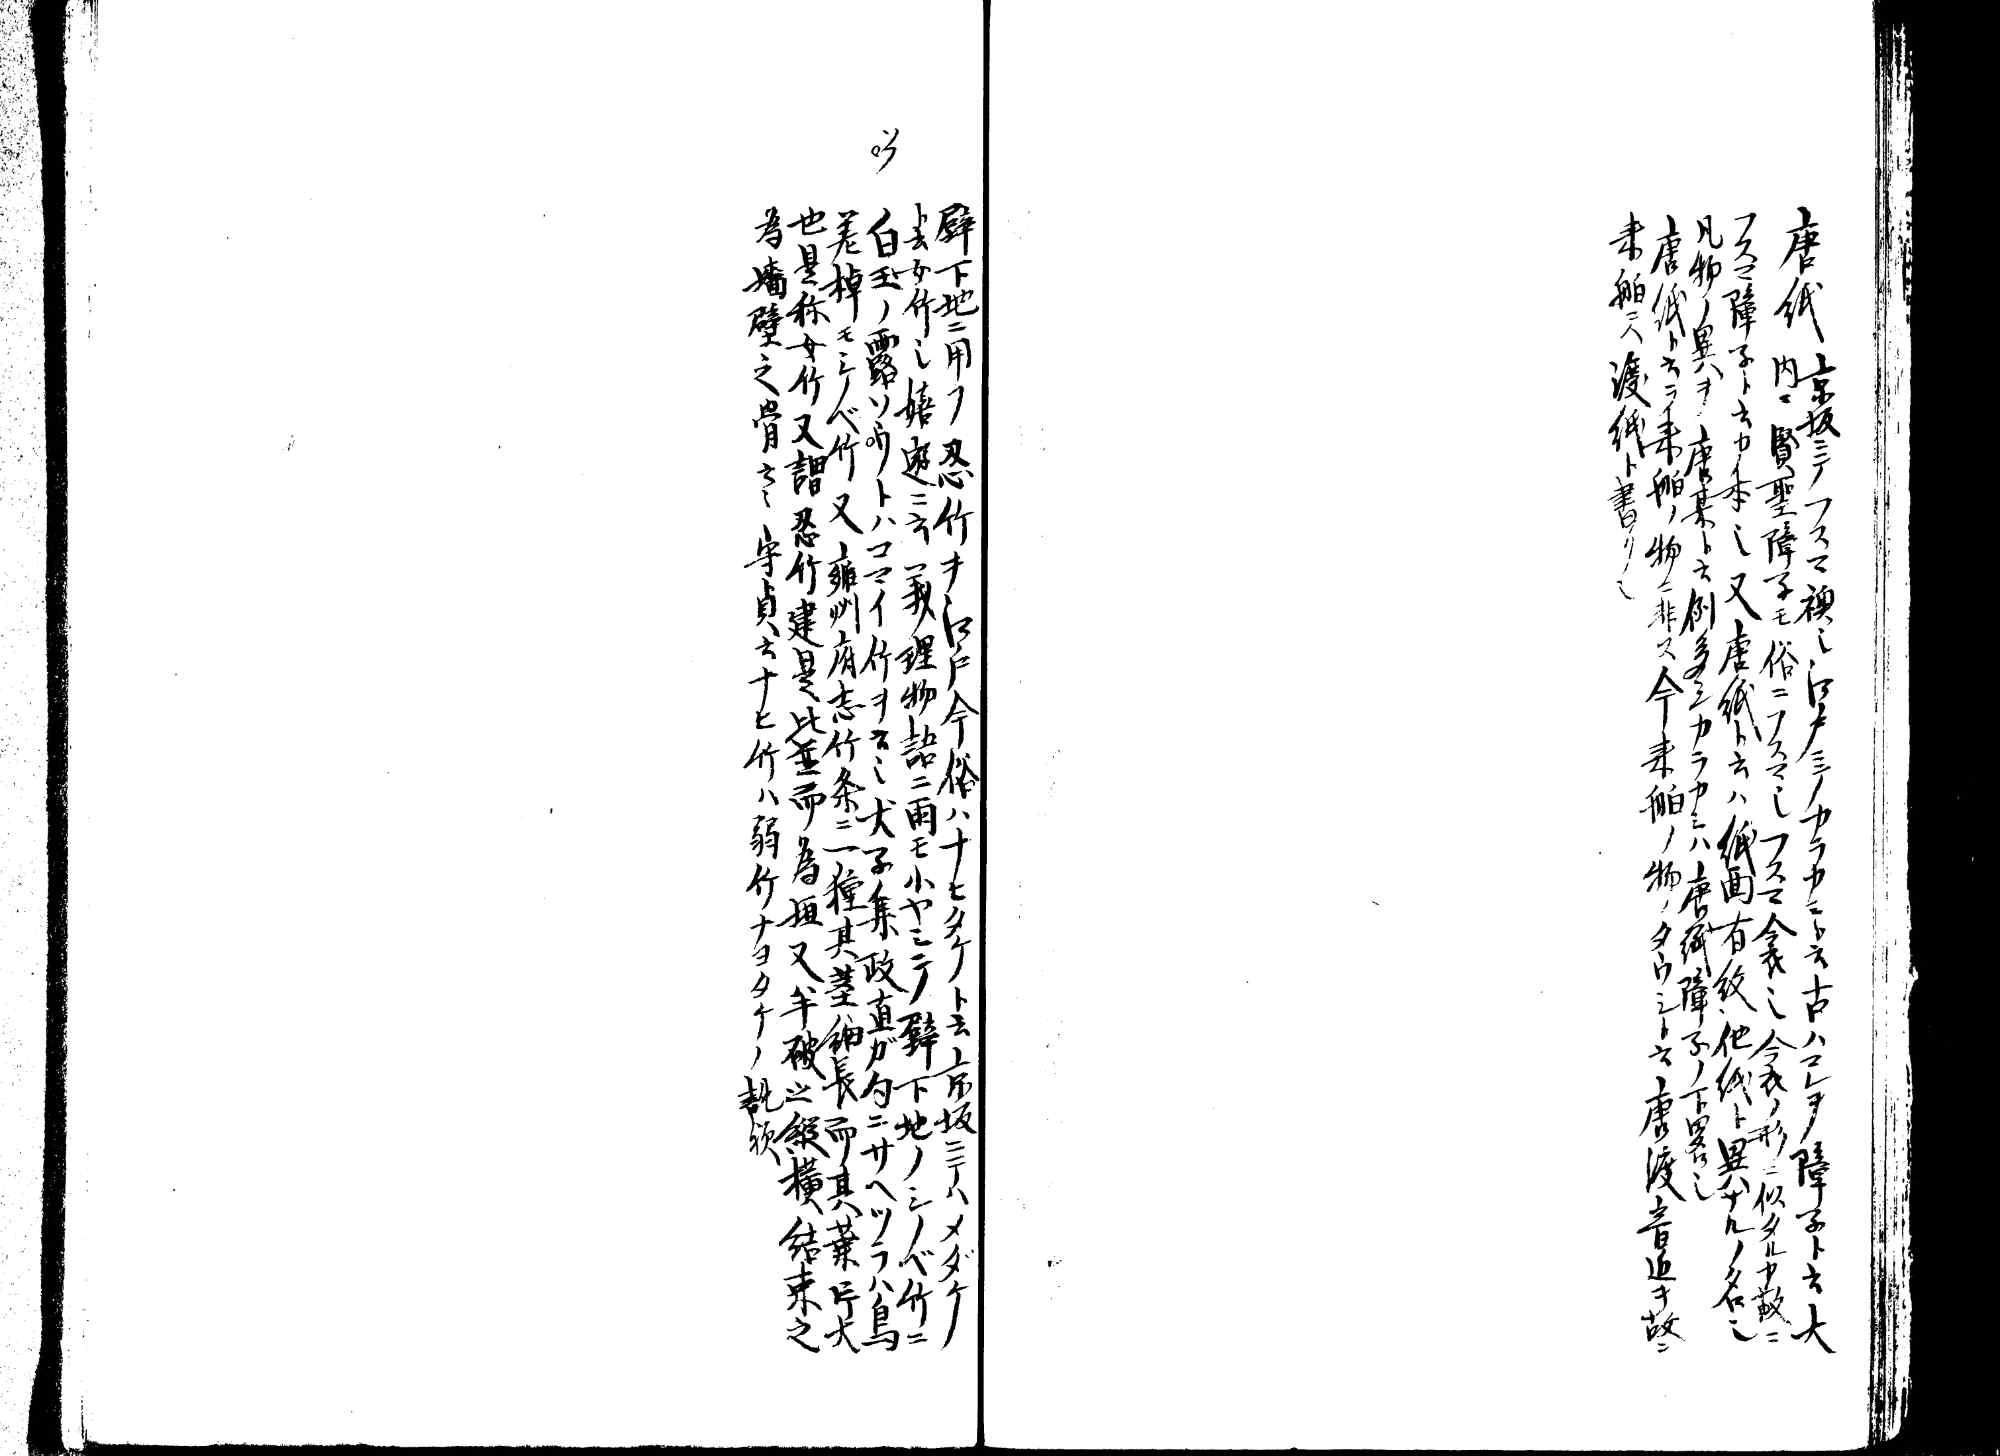 唐紙 京坂ニテフスマ襖也江戸ニテカラカミト云古ハコレヲ障子ト云大
内ニ賢聖障子モ俗ニフスマ也フスマ衾也衾ノ形ニ似タルカ故ニ
フスマ障子ト云カ本也又唐紙ト云ハ紙面有紋他紙ト異ナルノ名也
凡物ノ異ヲ唐某ト云例多シカラカミハ唐紙障子ノ下畧也
唐紙ト云テ来舶ノ物ニ非ス今来舶ノ物ノタウシト云唐渡音近キ故ニ
来舶ニハ渡紙ト書リ也
壁下地ニ用フ忍竹ヲ江戸今俗ハ十ヒタケト云京坂ニテハメダケ
ト云女竹也嬉遊ニ云義理物語ニ雨モ小ヤミニテ壁下地ノシノベ竹ニ
白玉ノ露ソウトハコマイ竹ヲ云也犬子集政直ガ句ニサヘツラハ鳥
差棹モシノベ竹又雍州府志竹条ニ一種其茎細長而其葉片大
也是称女竹又謂忍竹建是比並而為垣又半破之縦横結束之
為墻壁之骨云々守貞云十ヒ竹ハ弱竹ナヨタケノ訛歟